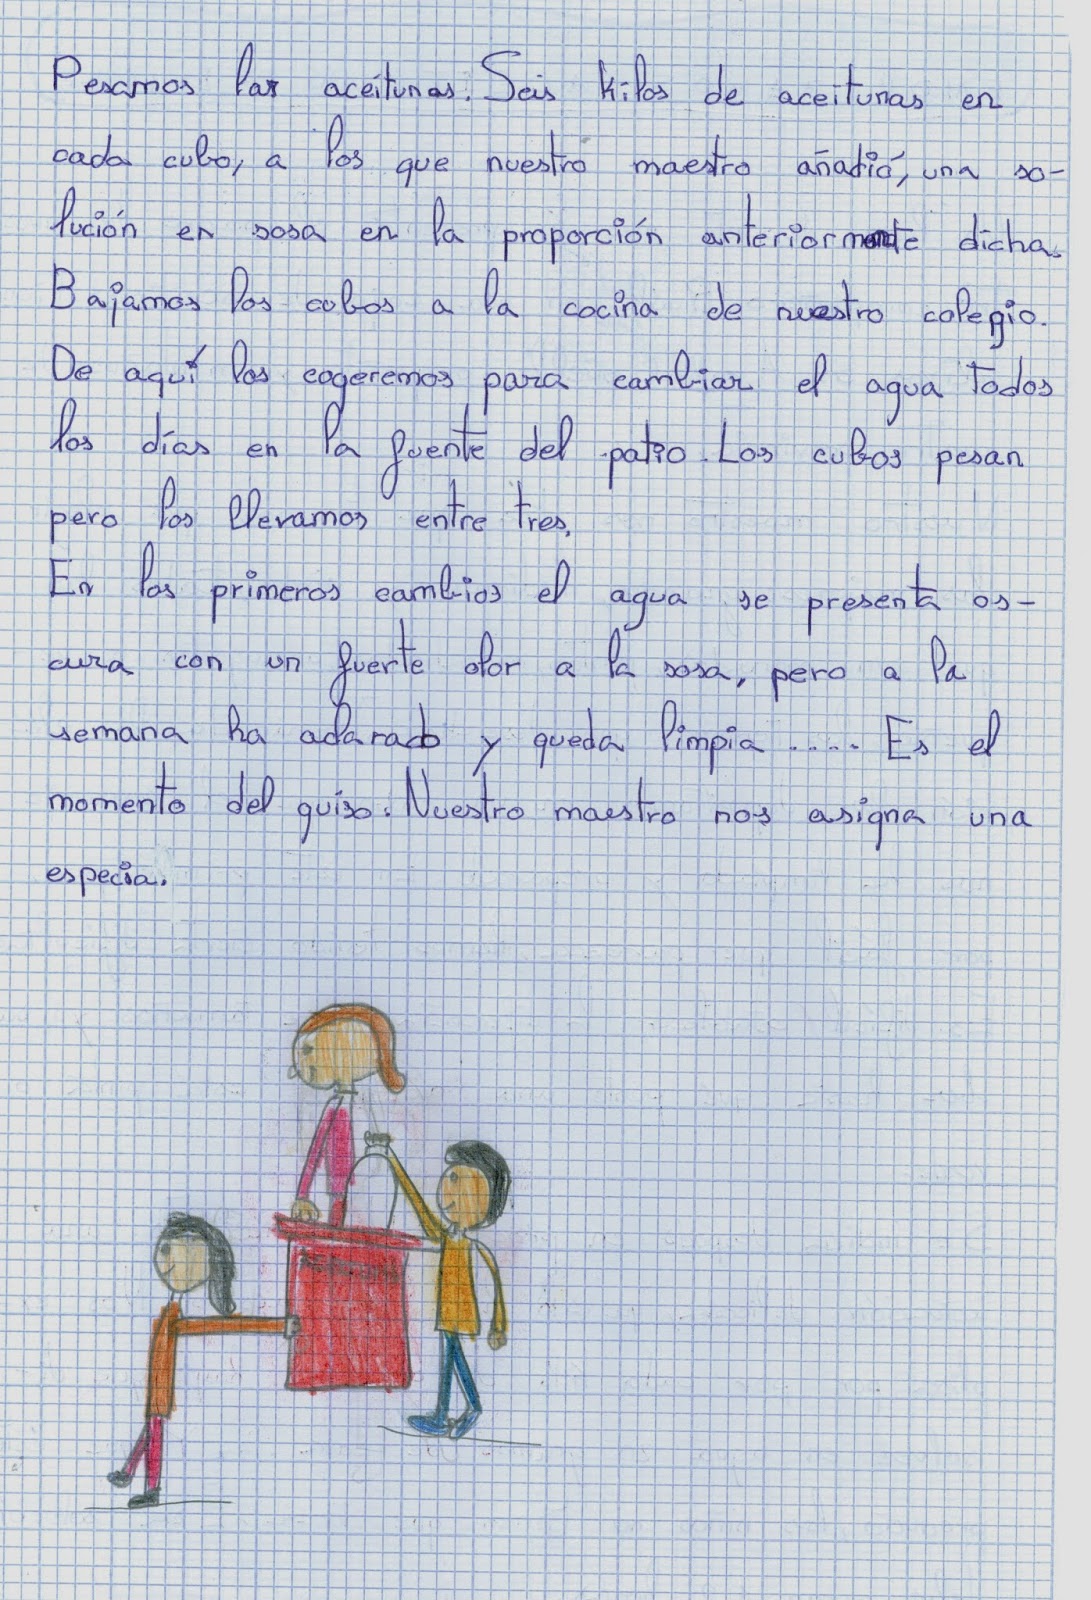 Pesamos las aceitunas. Seis kilos de aceitunas en
cada cubo, a los que nuestro maestro añadió, una so-
lución en sosa en la proporción anteriormente dicha.
Bajamos los cubos a la cocina de nuestro colegio.
De aquí los cogeremos para cambiar el agua todos
los días en la fuente del patio. Los cubos pesan
pero los llevamos entre tres.
En los primeros cambios el agua se presenta os-
cura con un fuerte olor a la sosa, pero a la
semana ha aclarado y queda limpia ..... Es el
momento del guiso. Nuestro maestro nos asigna una
especia.